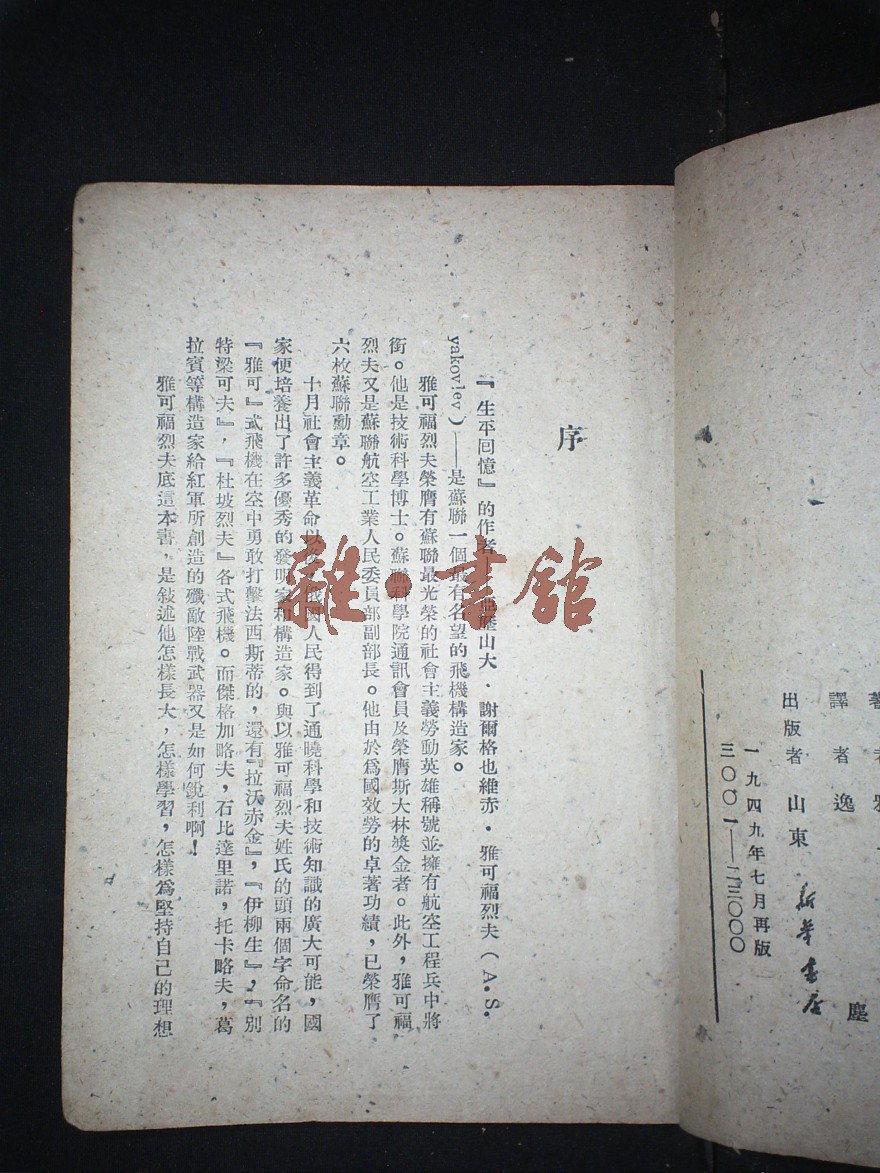 著 者 雅
譯 者 逸 塵
出版者 山東 新華書店
一九四九年七月再版
三〇〇一——二三〇〇〇
序
『生平回憶』的作者 歷山大．謝爾格也維赤．雅可福烈夫(A.S.
yakovlev)——是蘇聯一個最有名望的飛機構造家。
雅可福烈夫榮膺有蘇聯最光榮的社會主義勞動英雄稱號並擁有航空工程兵中將
銜。他是技術科學博士。蘇聯科學院通訊會員及榮膺斯大林獎金者。此外，雅可福
烈夫又是蘇聯航空工業人民委員部副部長。他由於爲國效勞的卓著功績，已榮膺了
六枚蘇聯勳章。
十月社會主義革命以 俄國人民得到了通曉科學和技術知識的廣大可能，國
家便培養出了許多優秀的發明家和構造家。與以雅可福烈夫姓氏的頭兩個字命名的
『雅可』式飛機在空中勇敢打擊法西斯蒂的，還有『拉沃赤金』，『伊柳生』，『別
特梁可夫』，『杜坡烈夫』各式飛機。而傑格加略夫，石比達里諾，托卡略夫，葛
拉賓等構造家給紅軍所創造的殲敵陸戰武器又是如何銳利啊！
雅可福烈夫底這本書，是敍述他怎樣長大，怎樣學習，怎樣爲堅持自己的理想
雜·書館